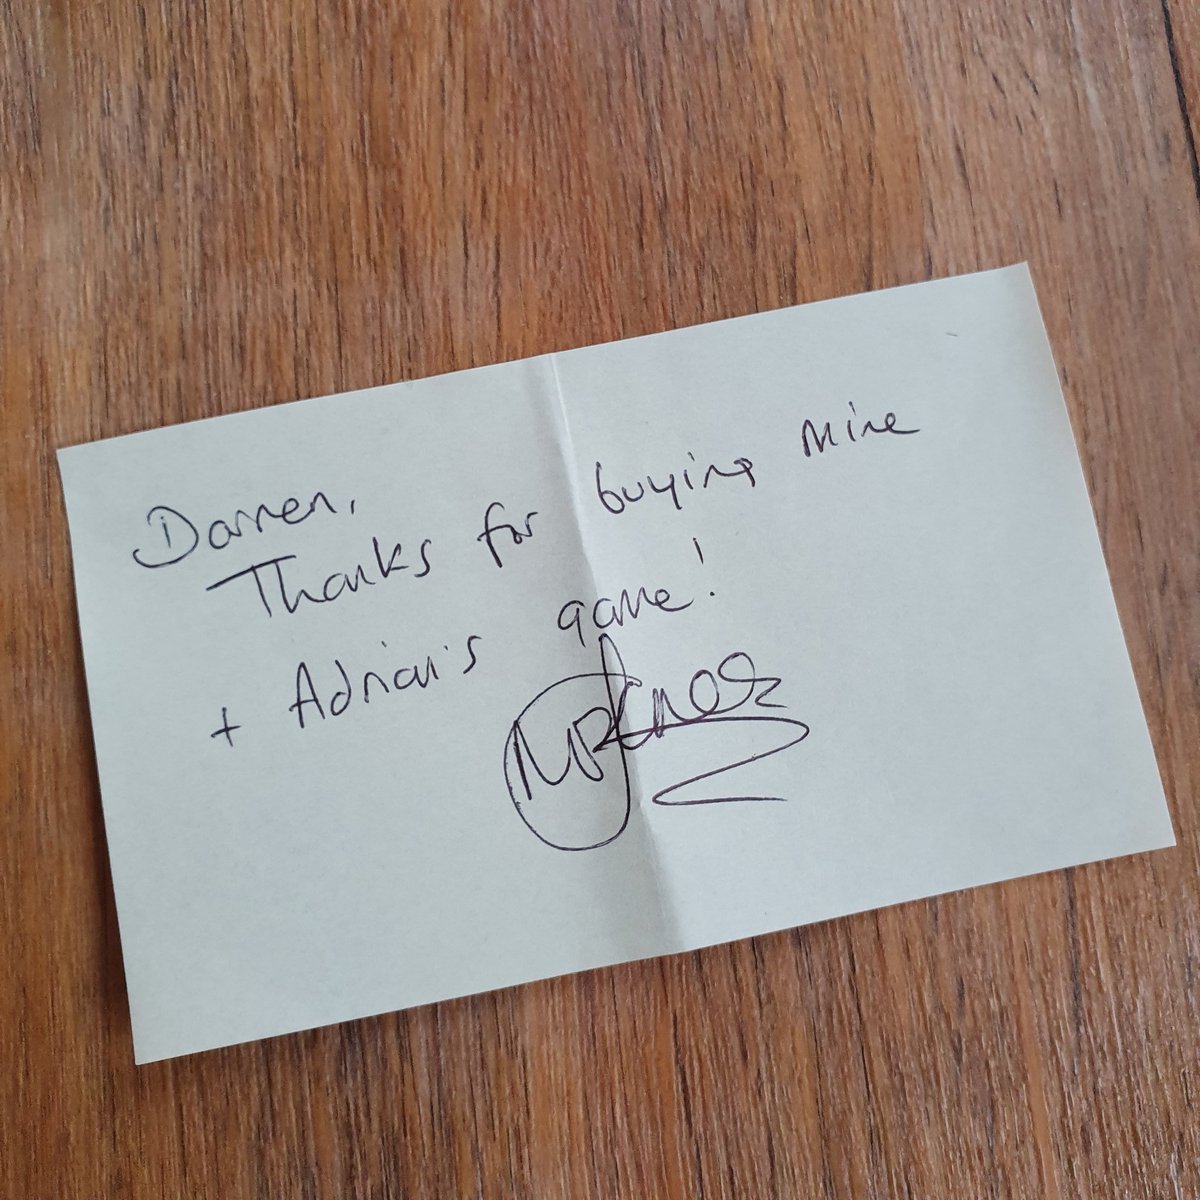 Darren,
Thanks for buying mine
+ Adrian's game!